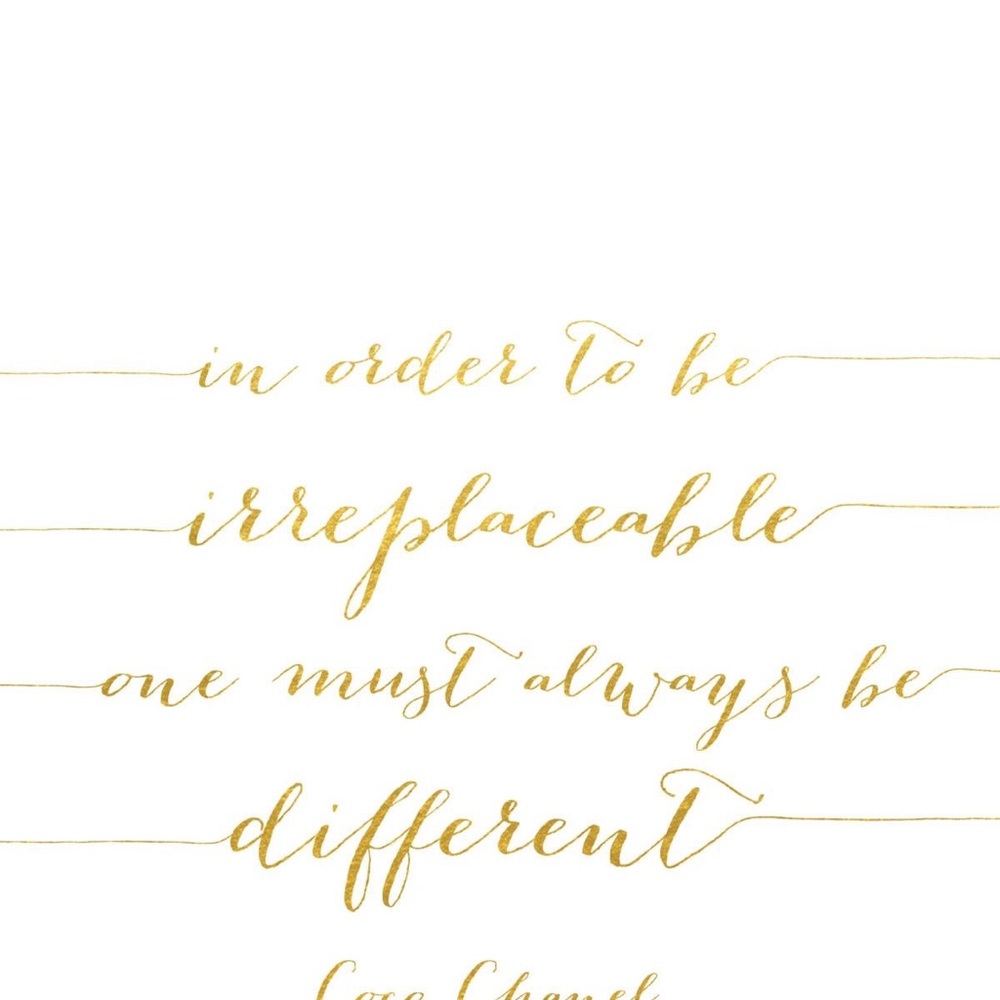 in order to be
irreplaceable
one must always be
different
Coco Chanel